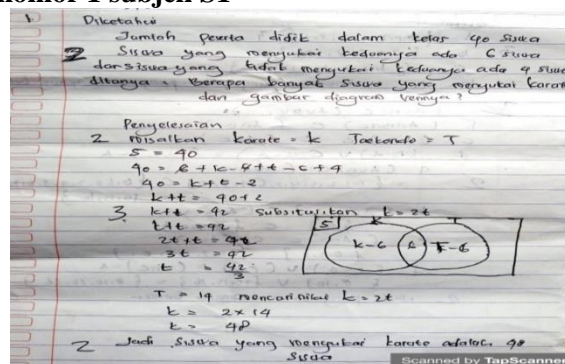 nomor 1 subjek S1
1. Diketahui
Jumlah peserta didik dalam kelas 40 siswa
2 Siswa yang menyukai keduanya ada 6 siswa
dan siswa yang tidak menyukai keduanya ada 4 siswa
ditanya : Berapa banyak siswa yang menyukai karate
dan gambar diagram vennya ?
Penyelesaian
2 misalkan karate = k Taekondo = T
S = 40
40 = 6 + k - 6 + t - 6 + 4
40 = k + t - 2
k + t = 40 + 2
3. k + t = 42 Substitusikan k = 2t
k + t = 42
2t + t = 42
3t = 42
t = 42
3
S K T
k-6 6 T-6
T = 14 mencari nilai k = 2t
k = 2 x 14
k = 48
2 Jadi siswa yang menyukai karate adalah 48
siswa
Scanned by TapScanner